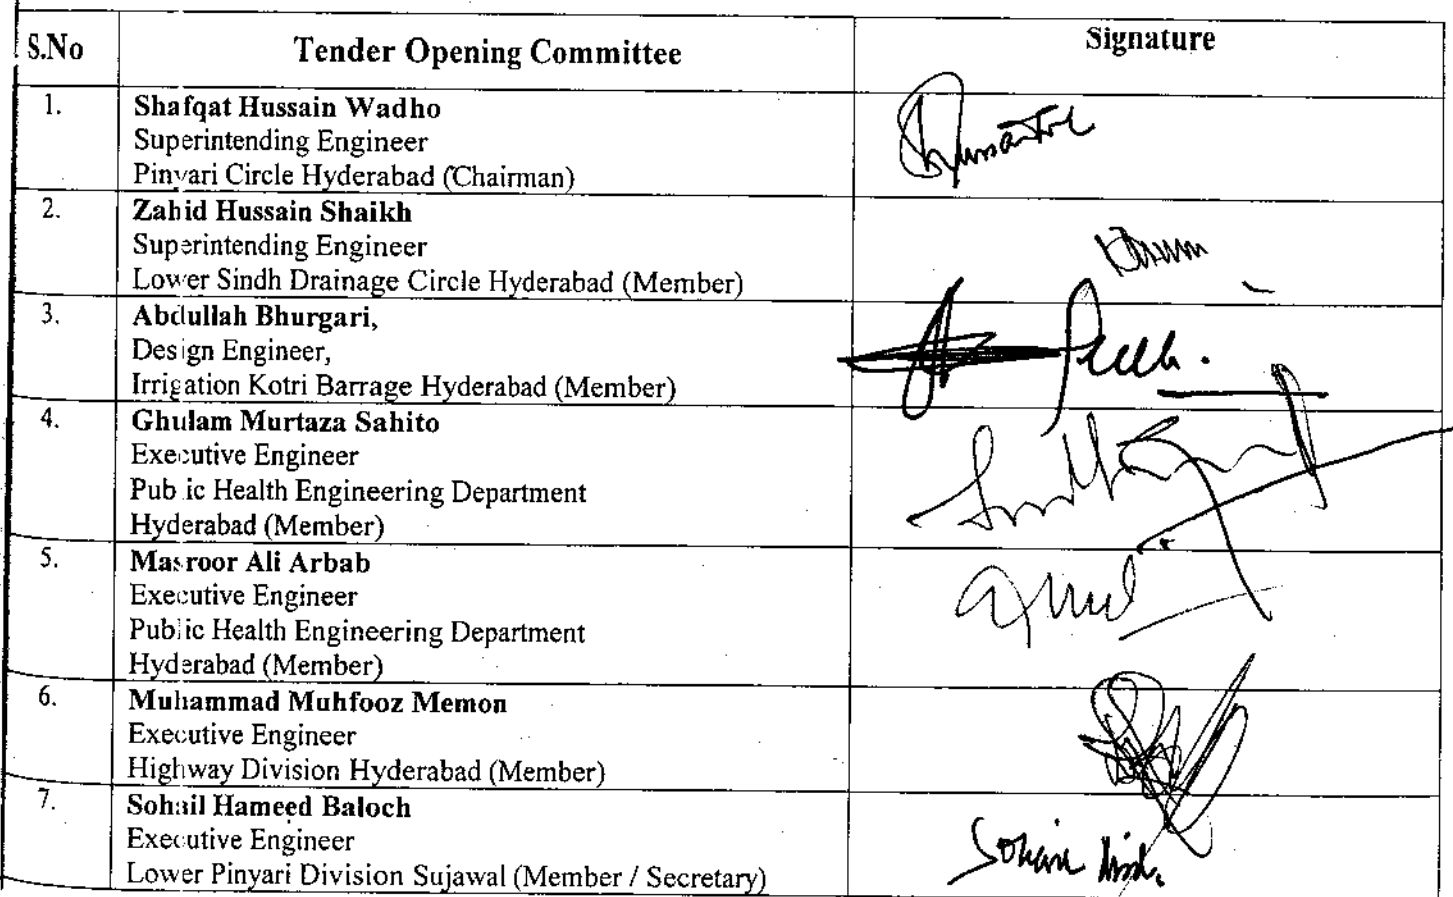 S.No Tender Opening Committee Signature
1. Shafqat Hussain Wadho
Superintending Engineer
Pinyari Circle Hyderabad (Chairman)
2. Zahid Hussain Shaikh
Superintending Engineer
Lower Sindh Drainage Circle Hyderabad (Member)
3. Abdullah Bhurgari,
Design Engineer,
Irrigation Kotri Barrage Hyderabad (Member)
4. Ghulam Murtaza Sahito
Executive Engineer
Public Health Engineering Department
Hyderabad (Member)
5. Masroor Ali Arbab
Executive Engineer
Public Health Engineering Department
Hyderabad (Member)
6. Muhammad Muhfooz Memon
Executive Engineer
Highway Division Hyderabad (Member)
7. Sohail Hameed Baloch
Executive Engineer
Lower Pinyari Division Sujawal (Member / Secretary)